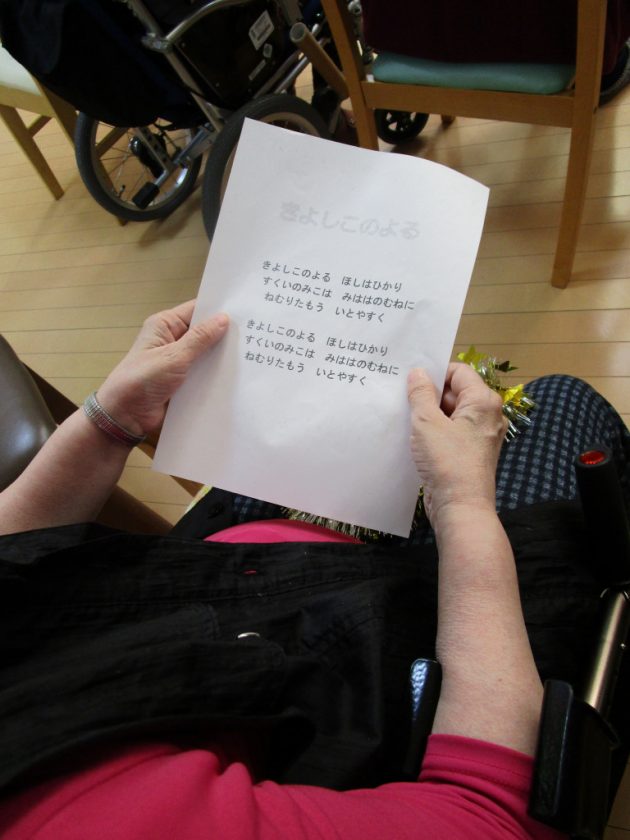 きよしこのよる
きよしこのよる　ほしはひかり
すくいのみこは　みははのむねに
ねむりたもう　いとやすく
きよしこのよる　ほしはひかり
すくいのみこは　みははのむねに
ねむりたもう　いとやすく